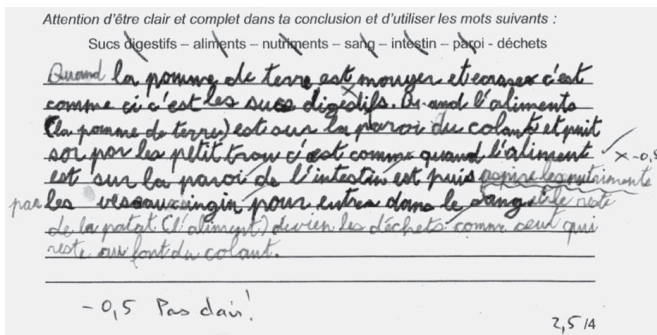 Attention d'être clair et complet dans ta conclusion et d'utiliser les mots suivants :
Sucs digestifs – aliments – nutriments – sang – intestin – paroi - déchets
Quand la pomme de terre est mouyer et ecraser c'est
comme ci c'est les sucs digestifs. Quand l'aliments
(la pomme de terre) est sur la paroi du colant et puit
sor par les petit trou c'est comme quand l'aliment
est sur la paroi de l'intestin est puis aspire les nutriments
par les vesaux pour entrer dans le sang et le reste
de la patat (l'aliment) devien les déchets comme ceut qui
reste au font du colant.
x -0,5
-0,5 Pas clair!
2,5/4